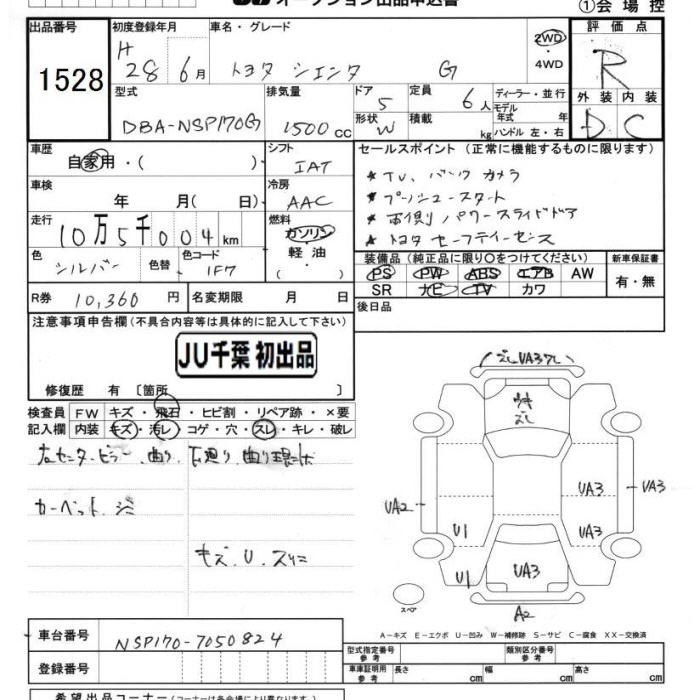 オークション出品申込書
①会場控
出品番号 初度登録年月 車名・グレード 評価点
1528 H 28年 6月 トヨタ シエンタ G 2WD・4WD R
型式 排気量 ドア 定員 ディーラー・並行 外装 内装
DBA-NSP170G 1500cc 5 6人 モデル年式 年 D C
形状 W 積載 kg ハンドル 左・右
車歴 自家用・( ) シフト IAT セールスポイント(正常に機能するものに限ります)
★TV、バックカメラ
車検 年 月(日) 冷房 AAC
★プッシュスタート
★両側パワースライドドア
走行 10万5千004km 燃料 ガソリン・軽油・( )
★トヨタセーフティーセンス
色 シルバー 色替 色コード 1F7
装備品(純正品に限り○をつけてください) 新車保証書
PS PW ABS エアB AW 有・無
SR ナビ TV カワ
R券 10,360円 名変期限 月 日 後日品
注意事項申告欄(不具合内容等は具体的に記入して下さい)
JU千葉 初出品
修復歴 有 〔箇所 〕
検査員記入欄 FW キズ・飛石・ヒビ割・リペア跡・×要
内装 キズ・汚レ・コゲ・穴・スレ・キレ・破レ
右センターピラー曲り、
カーペットジミ
キズ、U、スリ
ズレ UA3 ワレ
ズレ
UA2
UA3
UA3
U1
UA3
U1
UA3
A2
スペア
A-キズ E-エクボ U-凹み W-補修跡 S-サビ C-腐食 XX-交換済
車台番号 NSP170-7050824
登録番号
型式指定番号 参考 類別区分番号 参考
車庫証明用 参考 長さ cm 幅 cm 高さ cm
希望出品コーナー(コーナーは各会場により異なります)